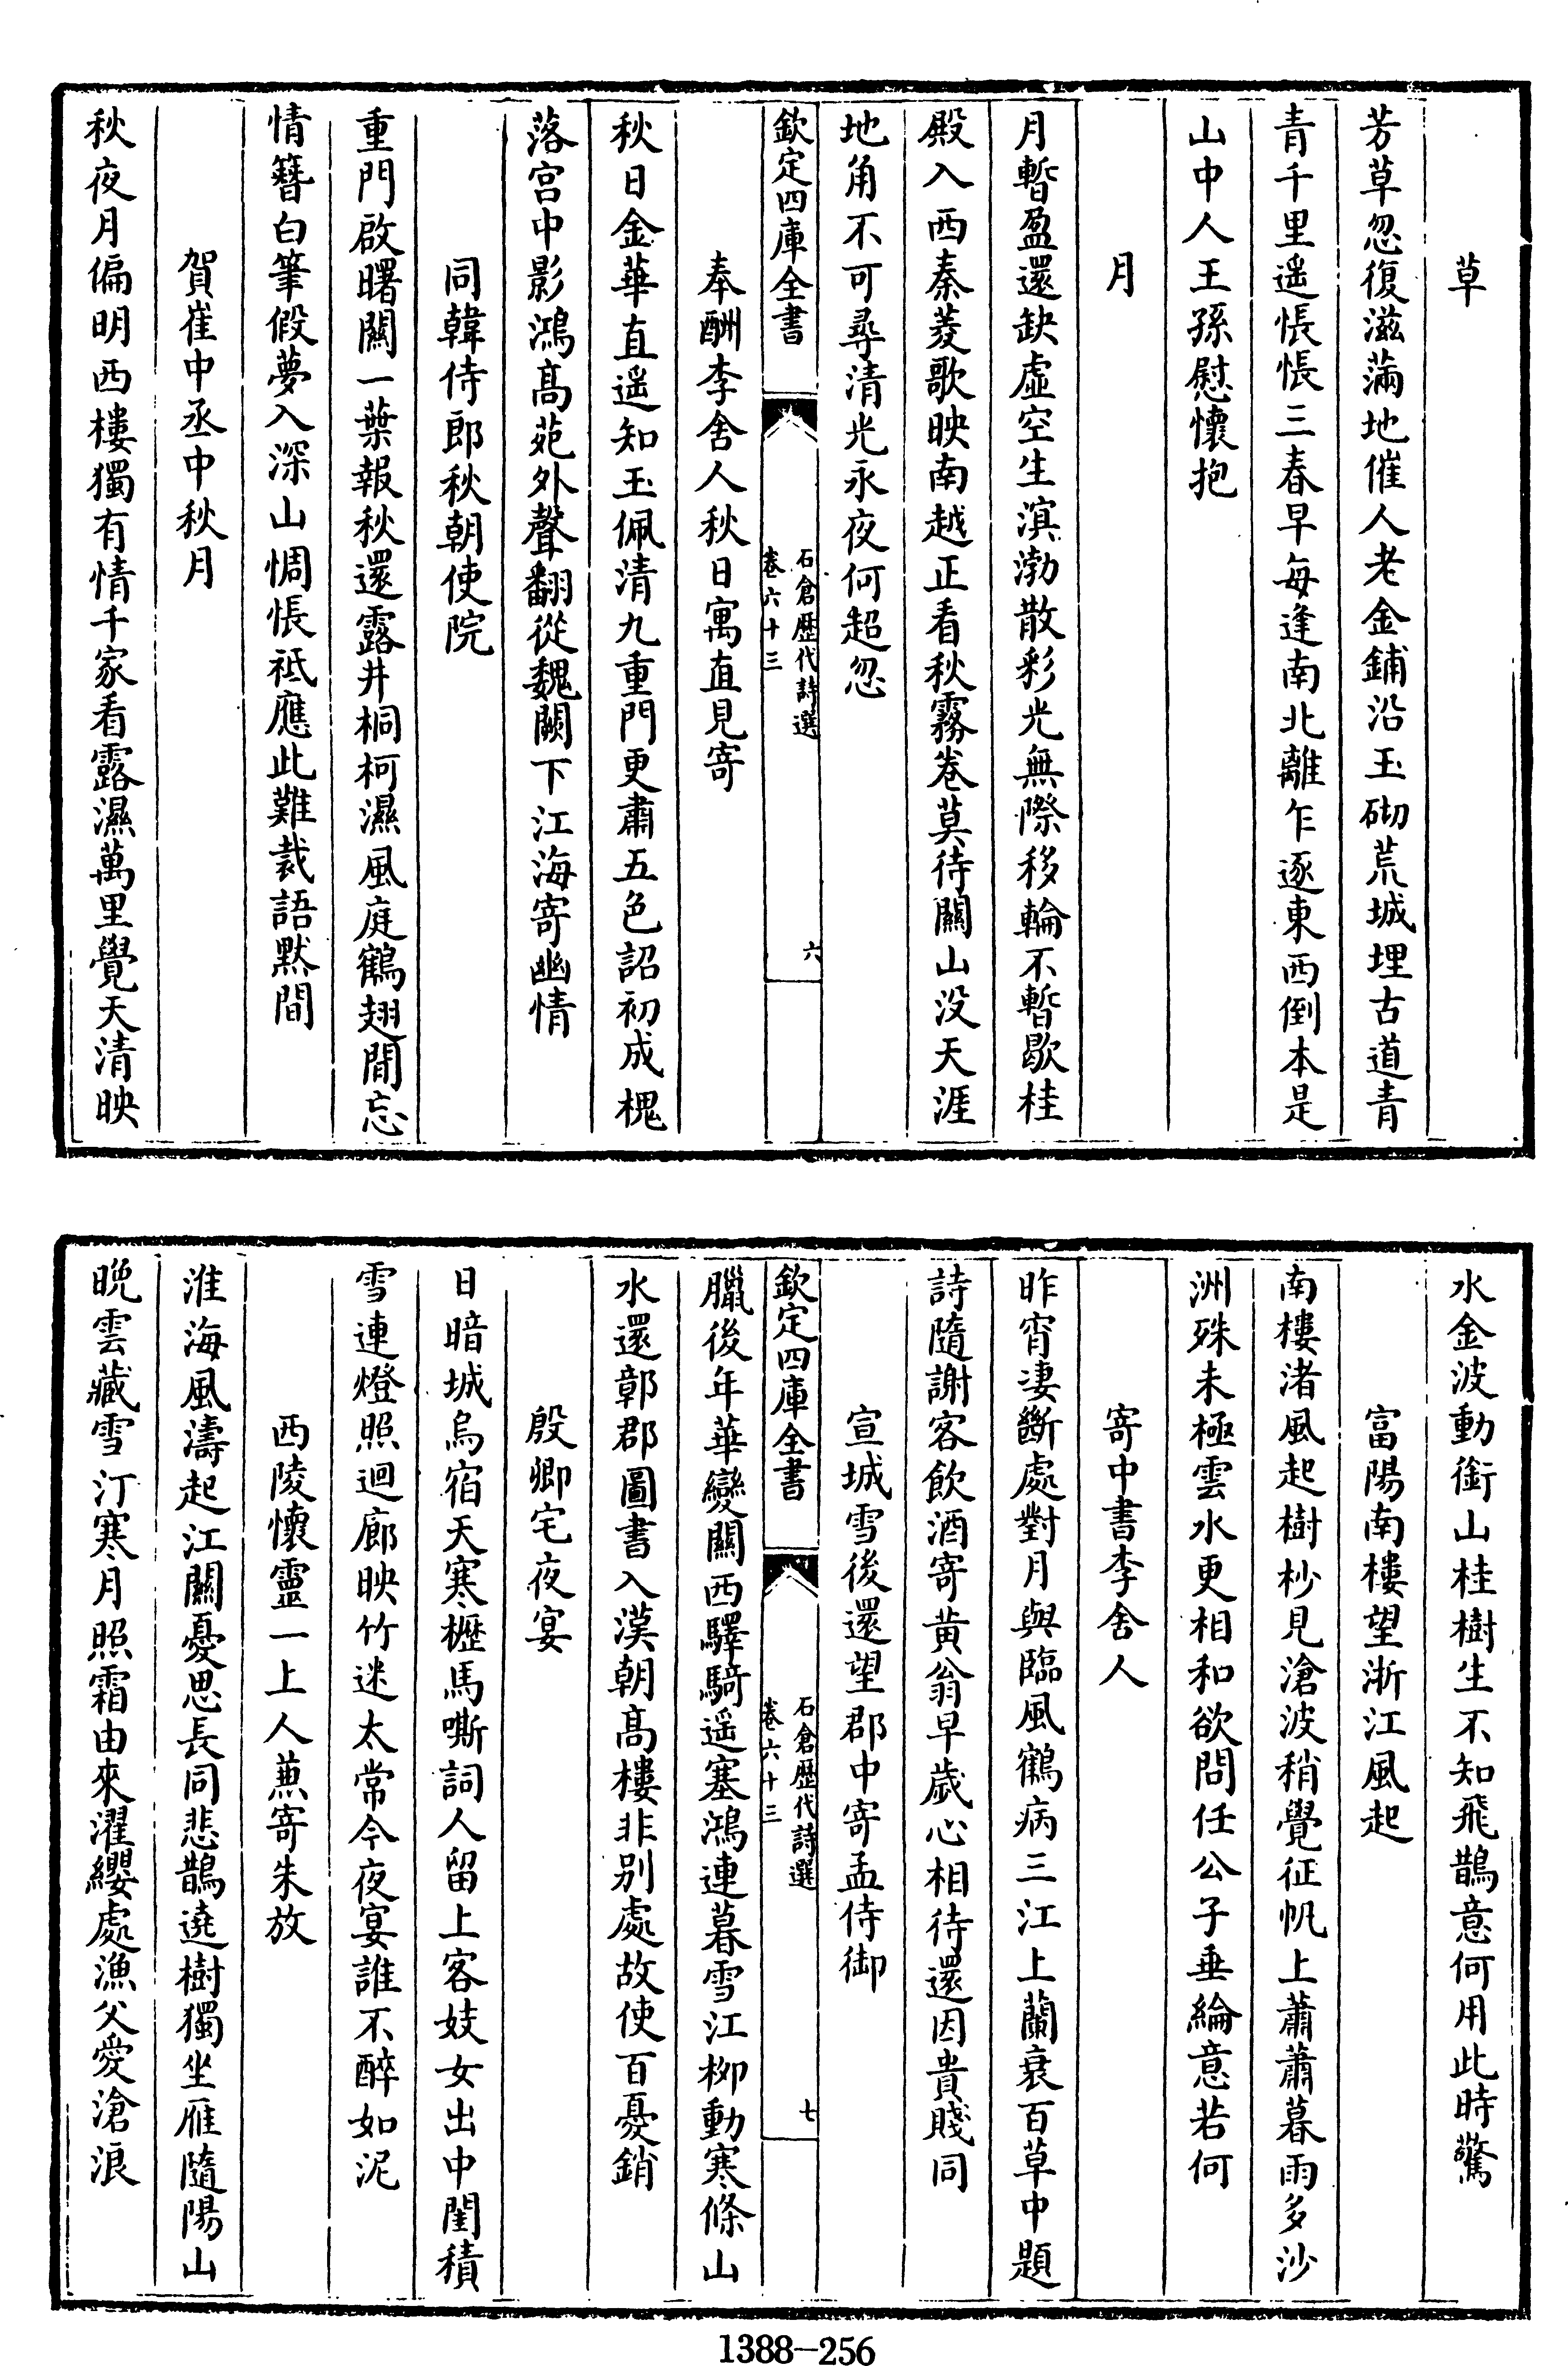 草
芳草忽復滋滿地催人老金鋪沿玉砌荒城埋古道青
青千里遥悵悵三春早每逢南北離乍逐東西倒本是
山中人王孫慰懷抱
月
月暫盈還缺虛空生溟渤散彩光無際移輪不暫歇桂
殿入西秦菱歌映南越正看秋霧卷莫待關山没天涯
地角不可尋清光永夜何超忽
欽定四庫全書
石倉歴代詩選
卷六十三
六
奉酬李舍人秋日寓直見寄
秋日金華直遥知玉佩清九重門更肅五色詔初成槐
落宫中影鴻髙苑外聲翻從魏闕下江海寄幽情
同韓侍郎秋朝使院
重門啟曙關一葉報秋還露井桐柯濕風庭鶴翅閒忘
情簪白筆假夢入深山惆悵祗應此難裁語黙間
賀崔中丞中秋月
秋夜月偏明西樓獨有情千家看露濕萬里覺天清映
水金波動銜山桂樹生不知飛鵲意何用此時驚
富陽南樓望浙江風起
南樓渚風起樹杪見滄波稍覺征帆上蕭蕭暮雨多沙
洲殊未極雲水更相和欲問任公子垂綸意若何
寄中書李舍人
昨宵凄斷處對月與臨風鶴病三江上蘭衰百草中題
詩隨謝客飲酒寄黄翁早歲心相待還因貴賤同
宣城雪後還望郡中寄孟侍御
欽定四庫全書
石倉歴代詩選
卷六十三
七
臘後年華變關西驛騎遥塞鴻連暮雪江柳動寒條山
水還鄣郡圖書入漢朝髙樓非别處故使百憂銷
殷卿宅夜宴
日暗城烏宿天寒櫪馬嘶詞人留上客妓女出中閨積
雪連燈照迴廊映竹迷太常今夜宴誰不醉如泥
西陵懷靈一上人蒹寄朱放
淮海風濤起江關憂思長同悲鵲遶樹獨坐雁隨陽山
晚雲藏雪汀寒月照霜由來濯纓處漁父愛滄浪
1388-256